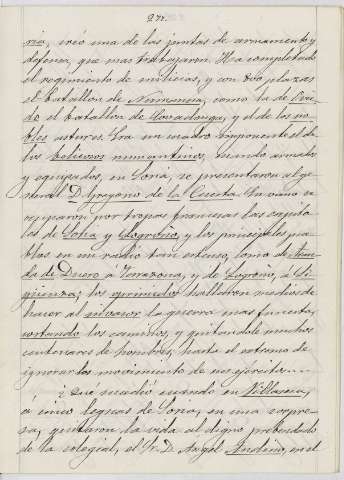 ria, creó una de las juntas de armamento y
defensa, que mas trabajaron. Ha completado
el regimiento de milicias, y con 800 plazas
el batallon de Numancia, como la de Ovie-
do el batallon de Covadonga, y el de los no-
bles astures. Era un cuadro imponente el de
los belicosos numantinos, cuando armados
y equipados, en Soria, se presentaron al ge-
neral D. Gregorio de la Cuesta. En vano se
ocuparon por tropas francesas las capita-
les de Soria y Logroño, y los principales pue-
blos en un radio tan estenso, como de Aran-
da de Duero á Tarazona, y de Logroño, á Si-
güenza; los hallaron medios de
hacer al invasor la guerra mas funesta,
cortando los caminos, y quitandole muchos
centenares de hombres, hasta el estremo de
ignorar los movimientos de su ejército....
¿Que sucedió cuando en Villaseca,
a cinco leguas de Soria, en una sorpre-
sa, quitaron la vida al digno prebendado
de la colegial, el Sr. D. Angel Andino, en el